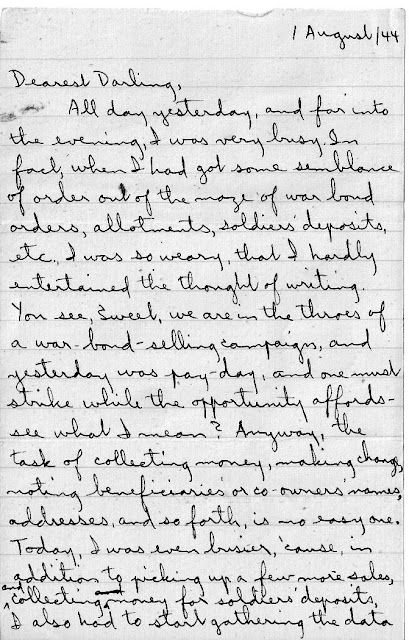 1 August/44
Dearest Darling,
All day yesterday, and far into
the evening, I was very busy. In
fact, when I had got some semblance
of order out of the maze of war bond
orders, allotments, soldiers' deposits,
etc., I was so weary, that I hardly
entertained the thought of writing.
You see, Sweet, we are in the throes of
a war-bond-selling campaign, and
yesterday was pay-day, and one must
strike while the opportunity affords-
see what I mean? Anyway, the
task of collecting money, making change,
noting beneficiaries' or co-owners' names,
addresses, and so forth, is no easy one.
Today, I was even busier, 'cause, in
addition to picking up a few more sales,
and collecting money for soldiers' deposits,
I also had to start gathering the data